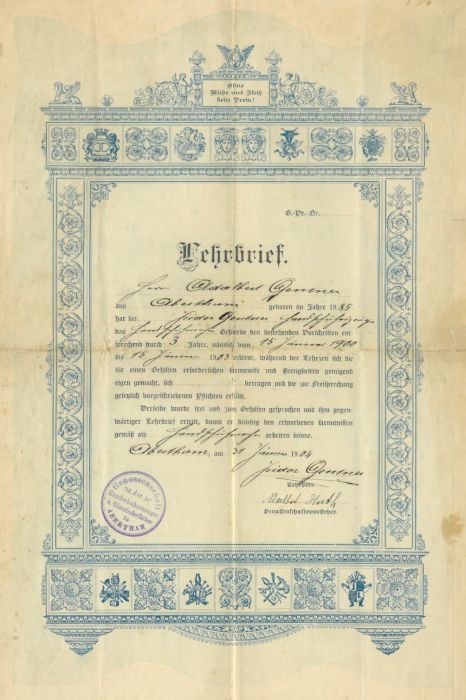 Ohne
Mühe und Fleiß
kein Preis!
G.-Pr.-Nr.
Lehrbrief.
Herr Adalbert Gentner
aus Abertham geboren im Jahre 1885
hat bei Isidor Gentner Handschuherzeuger
das Handschuhmacher Gewerbe den bestehenden Vorschriften ent-
sprechend durch 3 Jahre, nämlich vom 15 Jänner 1900
bis 15 Jänner 1903 erlernt, während der Lehrzeit sich die
für einen Gehilfen erforderlichen Kenntnisse und Fertigkeiten genügend
eigen gemacht, sich betragen und die zur Freisprechung
gesetzlich vorgeschriebenen Pflichten erfüllt.
Derselbe wurde frei und zum Gehilfen gesprochen und ihm gegen-
wärtiger Lehrbrief erteilt, damit er künftig den erworbenen Kenntnissen
gemäß als Handschuhmacher arbeiten könne.
Abertham, am 31 Jänner 1904
Isidor Gentner
Lehrherr.
Genossenschaftsvorsteher.
Genossenschaft
der
Handschuherzeuger
ABERTHAM